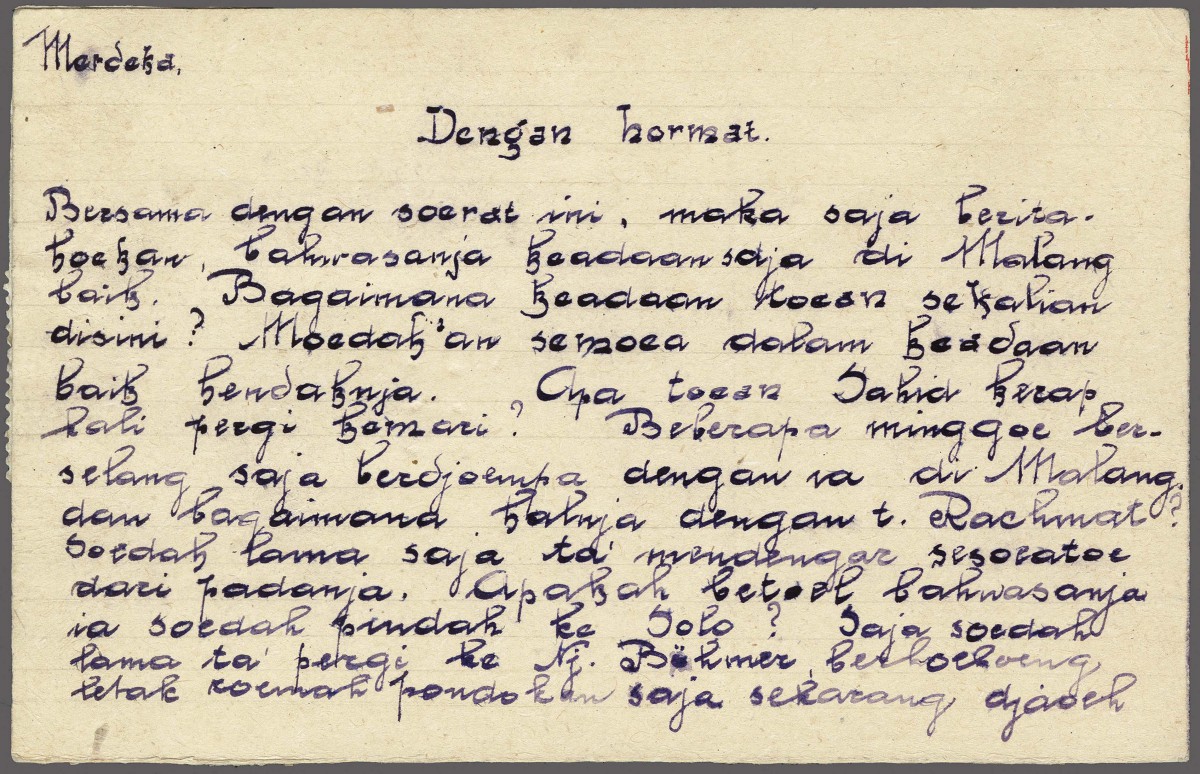 Merdeka,
Dengan hormat.
Bersama dengan soerat ini, maka saja berita-
hoekan, bahwasanja keadaan saja di Malang
baik. Bagaimana keadaan toean sekalian
disini? Moedah'an semoea dalam keadaan
baik hendaknja. Apa toean Sahid kerap
kali pergi kemari? Beberapa minggoe ber-
selang saja berdjoempa dengan ia di Malang.
dan bagaimana halnja dengan t. Rachmat?
Soedah lama saja ta' mendengar sesoeatoe
dari padanja. Apakah betoel bahwasanja
ia soedah pindah ke Solo? Saja soedah
lama ta' pergi ke Nj. Böhmer, berhoeboeng
letak roemah pondokan saja sekarang djaoeh